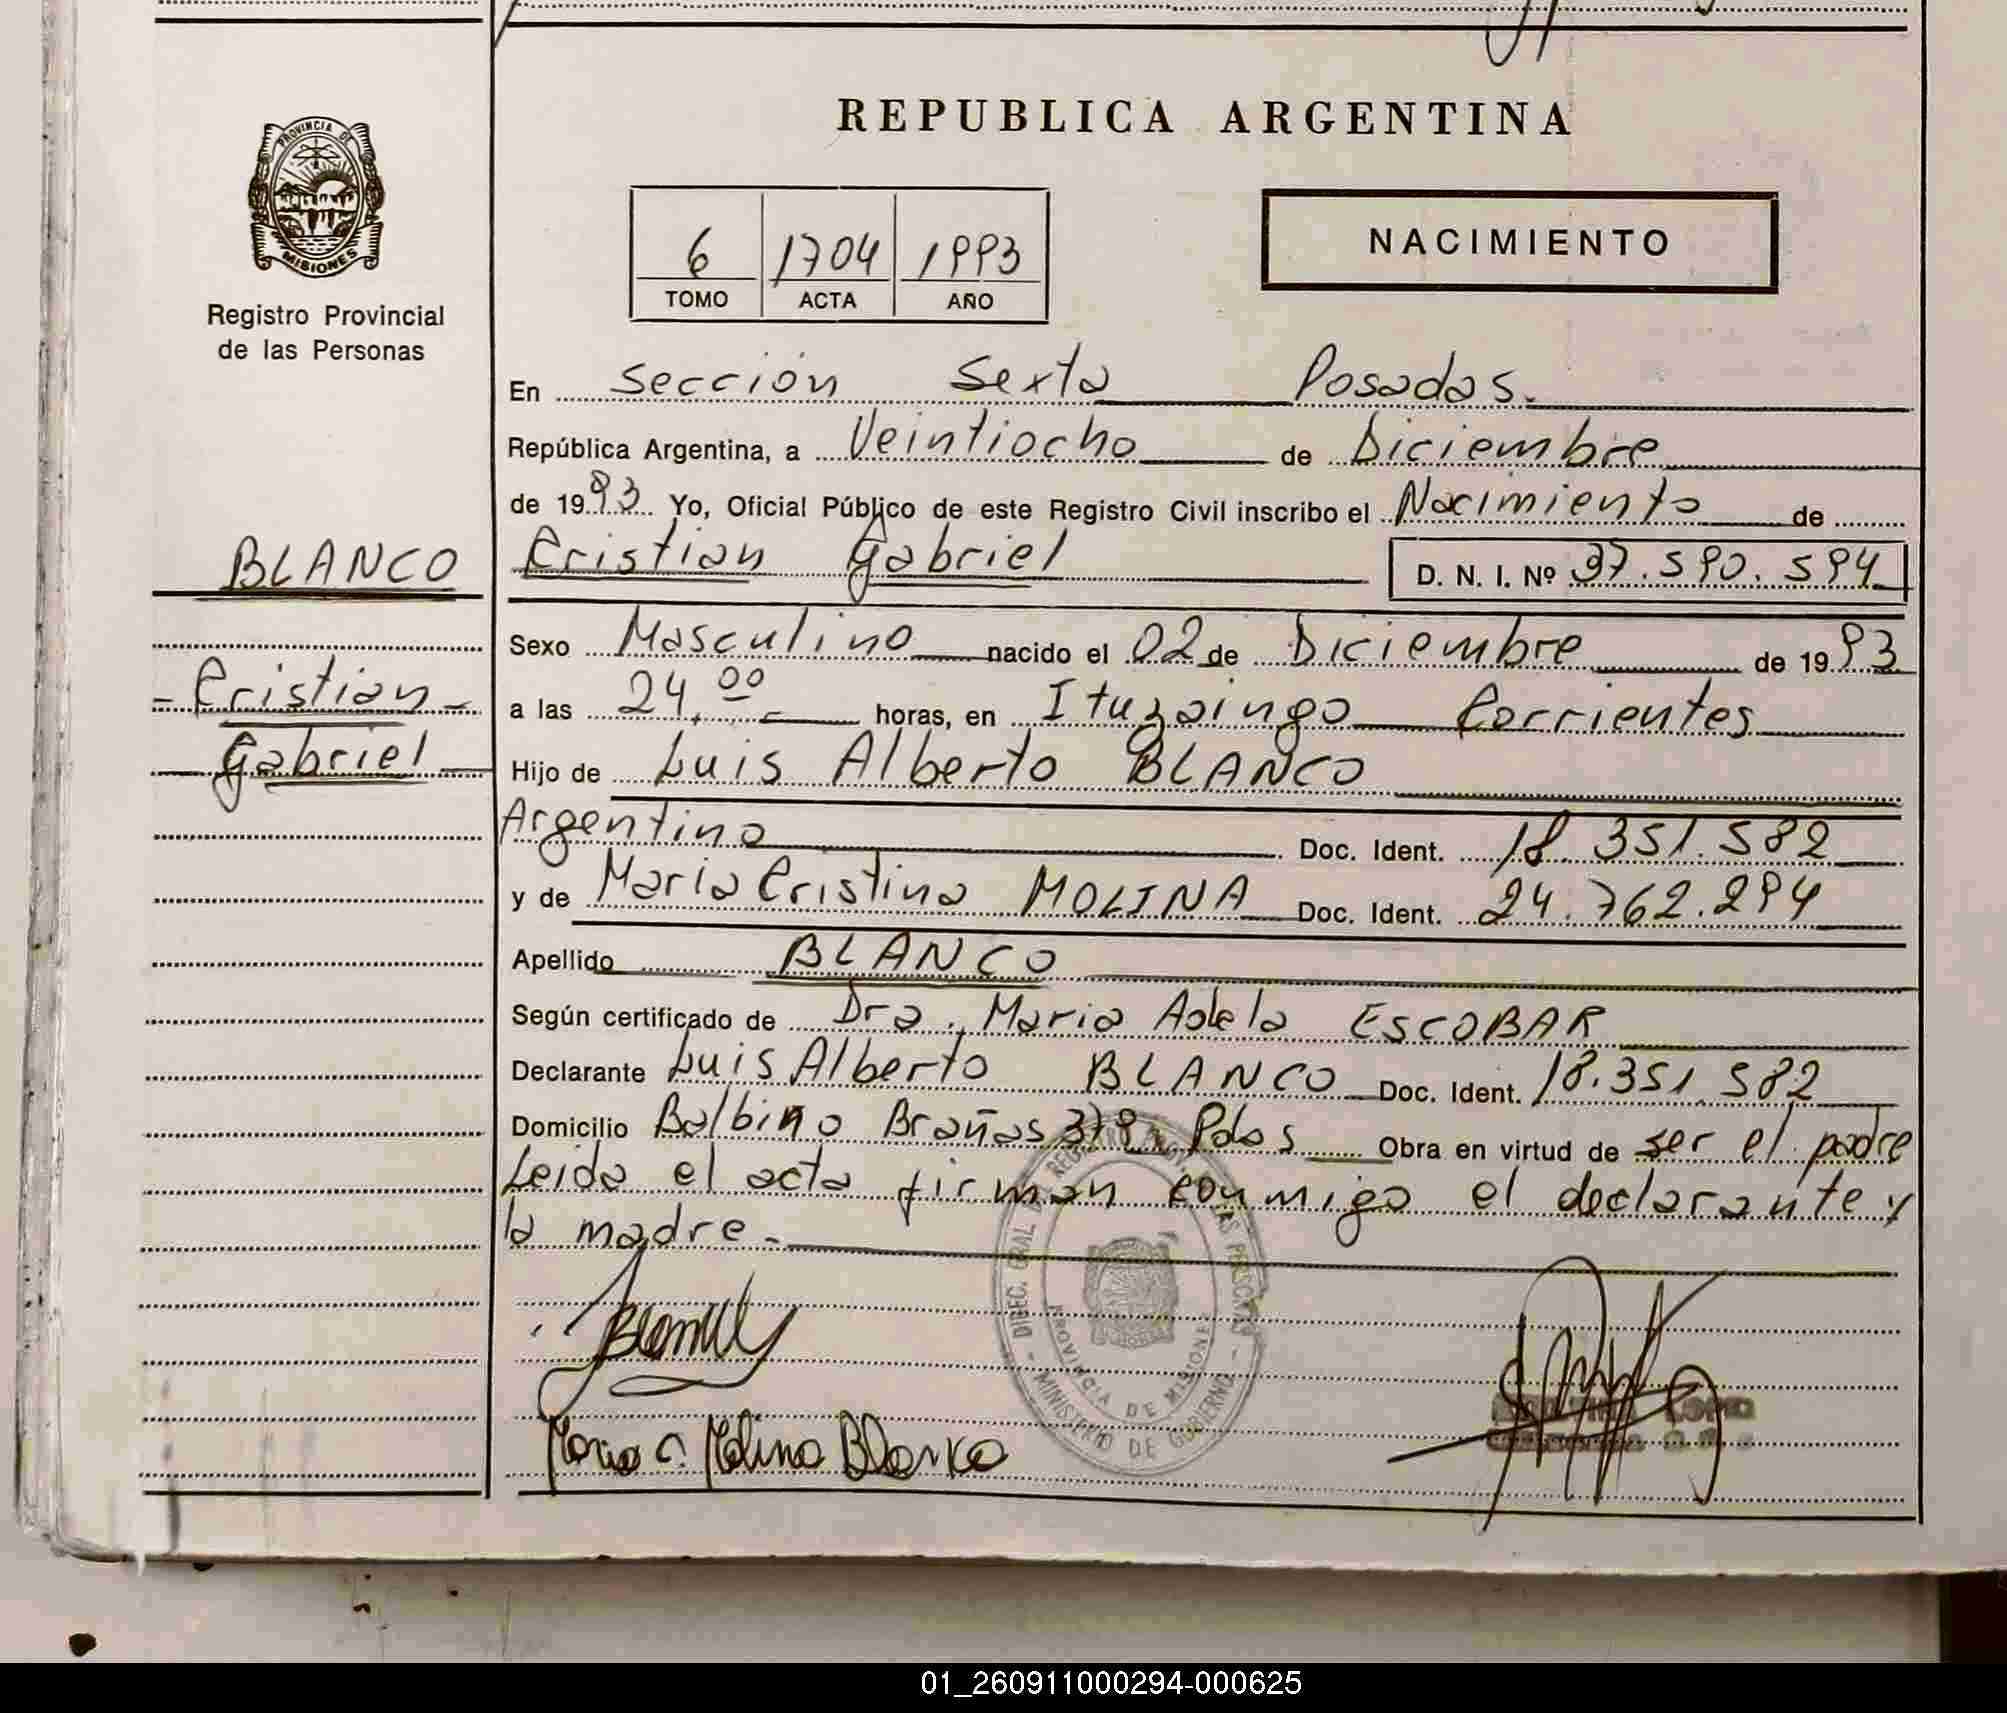 PROVINCIA DE
MISIONES
Registro Provincial
de las Personas
BLANCO
- Cristian -
Gabriel
REPUBLICA ARGENTINA
6 1704 1993
TOMO ACTA AÑO
NACIMIENTO
En Sección Sexta Posadas.
República Argentina, a Veintiocho de Diciembre
de 1993 Yo, Oficial Público de este Registro Civil inscribo el Nacimiento de
Cristian Gabriel D. N. I. Nº 37.590.594
Sexo Masculino nacido el 02 de Diciembre de 1993
a las 24,00 horas, en Ituzaingo Corrientes
Hijo de Luis Alberto BLANCO
Argentino Doc. Ident. 18.351.582
y de Maria Cristina MOLINA Doc. Ident. 24.762.294
Apellido BLANCO
Según certificado de Dra. Maria Adela ESCOBAR
Declarante Luis Alberto BLANCO Doc. Ident. 18.351.582
Domicilio Balbino Brañas 378 Pdas Obra en virtud de ser el padre
Leida el acta firman conmigo el declarante y
la madre.-
DIREC. GRAL DEL REGISTRO PROV. DE LAS PERSONAS
PROVINCIA DE MISIONES
- MINISTERIO DE GOBIERNO -
Maria C. Molina Blanco
01_260911000294-000625